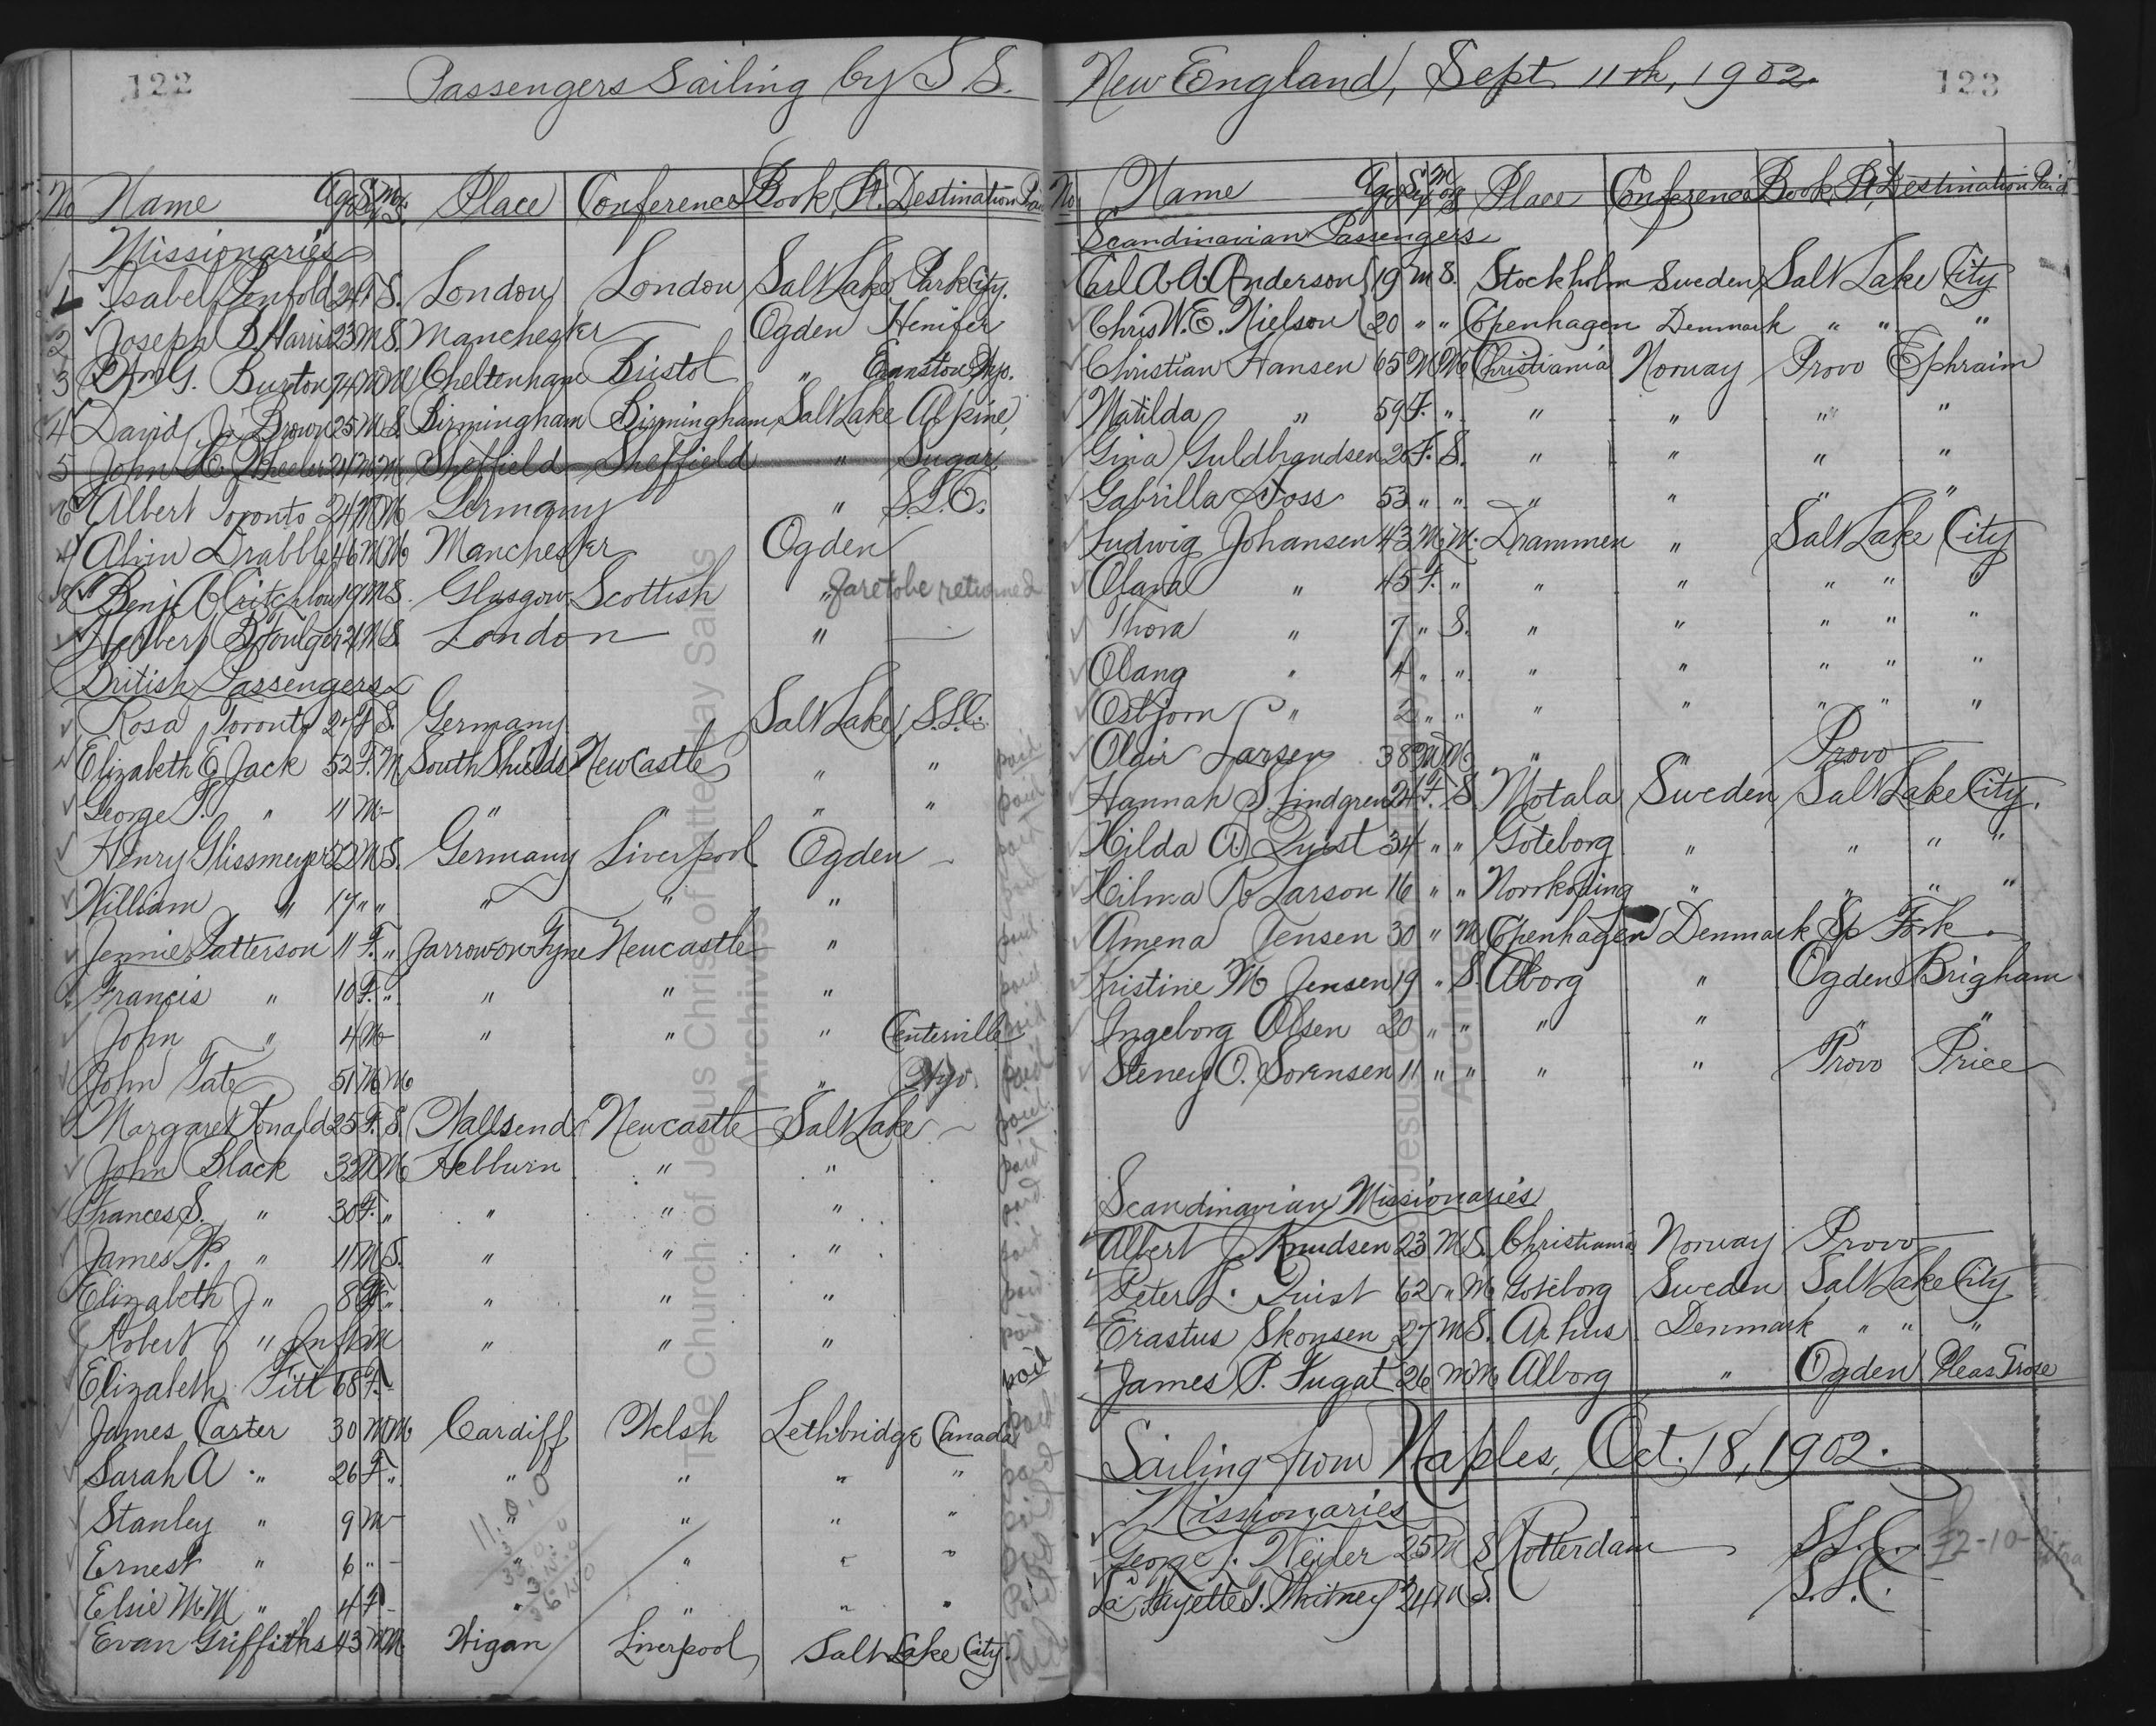 122
Passengers Sailing by S.S.
No Name Age Sex M or S. Place Conference Book Pt. Destination
Missionaries
1 Isabel Penfold 24 F S. London London Salt Lake Park City.
2 Joseph B. Harris 23 M S. Manchester Ogden Henifer
3 Wm G. Buxton M M Cheltenham Bristol " Evanston Wyo.
4 David J. Brown 25 M S. Birmingham Birmingham Salt Lake Alpine
5 John H. Wheeler M M Sheffield Sheffield " Sugar
6 Albert Toronto 24 M M Germany " S.L.C.
7 Alvin Drabble 46 M M Manchester Ogden
8 Benj A Critchlow 19 M S. Glasgow Scottish " fare to be returned
Herbert B. Foulger 21 M S. London "
British Passengers
Rosa Toronto F S. Germany Salt Lake S.L.C.
Elizabeth E Jack 52 F. M South Shields Newcastle " " paid
George T. " 11 M - " " " paid
Henry Glissmeyer 22 M S. Germany Liverpool Ogden - paid
William " 17 " " " " " paid
Jennie Patterson 11 F. " Jarrow on Tyne Newcastle " paid
Francis " 10 F. " " " " paid
John " 4 M - " " " Centerville paid
John Tate 51 M M " Wyo. paid
Margaret Ronald 25 F. S. Wallsend Newcastle Salt Lake - paid
John Black 32 M M Hebburn " " paid
Frances S. " 30 F. " " " " paid
James P. " 11 M S. " " " paid
Elizabeth J " 8 F " " " " paid
Robert " Inf M " " " paid
Elizabeth Titt 68 F. - paid
James Carter 30 M M Cardiff Welsh Lethbridge Canada paid
Sarah A " 26 F. " " " " " paid
Stanley " 9 M - " " " " paid
Ernest " 6 " - " " " " paid
Elsie M.M " 4 F - " " " " paid
Evan Griffiths 43 M M. Wigan Liverpool Salt Lake City. paid
11.0.0
The Church of Jesus Christ of Latter-day Saints
Archives
New England, Sept 11th, 1902.
123
No Name Age Sex M or S Place Conference Book Pt. Destination Paid
Scandinavian Passengers
Carl A. A. Anderson 19 M S. Stockholm Sweden Salt Lake City
Chris W. E. Nielson 20 " " Copenhagen Denmark " " "
Christian Hansen 65 M M Christiania Norway Provo Ephraim
Matilda " 59 F. " " " " "
Gina Guldbrandsen 26 F. S. " " " "
Gabrilla Foss 53 " " " " " "
Ludwig Johansen 43 M M. Drammen " Salt Lake City
Olava " 45 F. " " " " " "
Thora " 7 " S. " " " " "
Olang " 4 " " " " " " "
Osbjorn " 2 " " " " " " "
Olair Larsen 38 M M " " Provo
Hannah S Lindgren 24 F. S. Motala Sweden Salt Lake City.
Hilda A. Quist 34 " " Goteborg " " " "
Hilma R Larson 16 " " Norrkoping " " " "
Amena Jensen 30 " M Copenhagen Denmark Sp Fork.
Kristine M Jensen 19 " S. Alborg " Ogden Brigham
Ingeborg Olsen 20 " " " " " "
Steney O. Sorensen 11 " " " " Provo Price
Scandinavian Missionaries
Albert J. Knudsen 23 M S. Christiania Norway Provo
Peter L. Quist 62 " M Goteborg Sweden Salt Lake City
Erastus Skousen 27 M S. Arhus Denmark " " "
James P. Fugat 26 M M Alborg " Ogden Pleas Grove
Sailing from Naples, Oct. 18, 1902.
Missionaries
George J. Weiler 25 M S Rotterdam S.L.C.
La Fayette S. Whitney 24 M S. S.L.C.